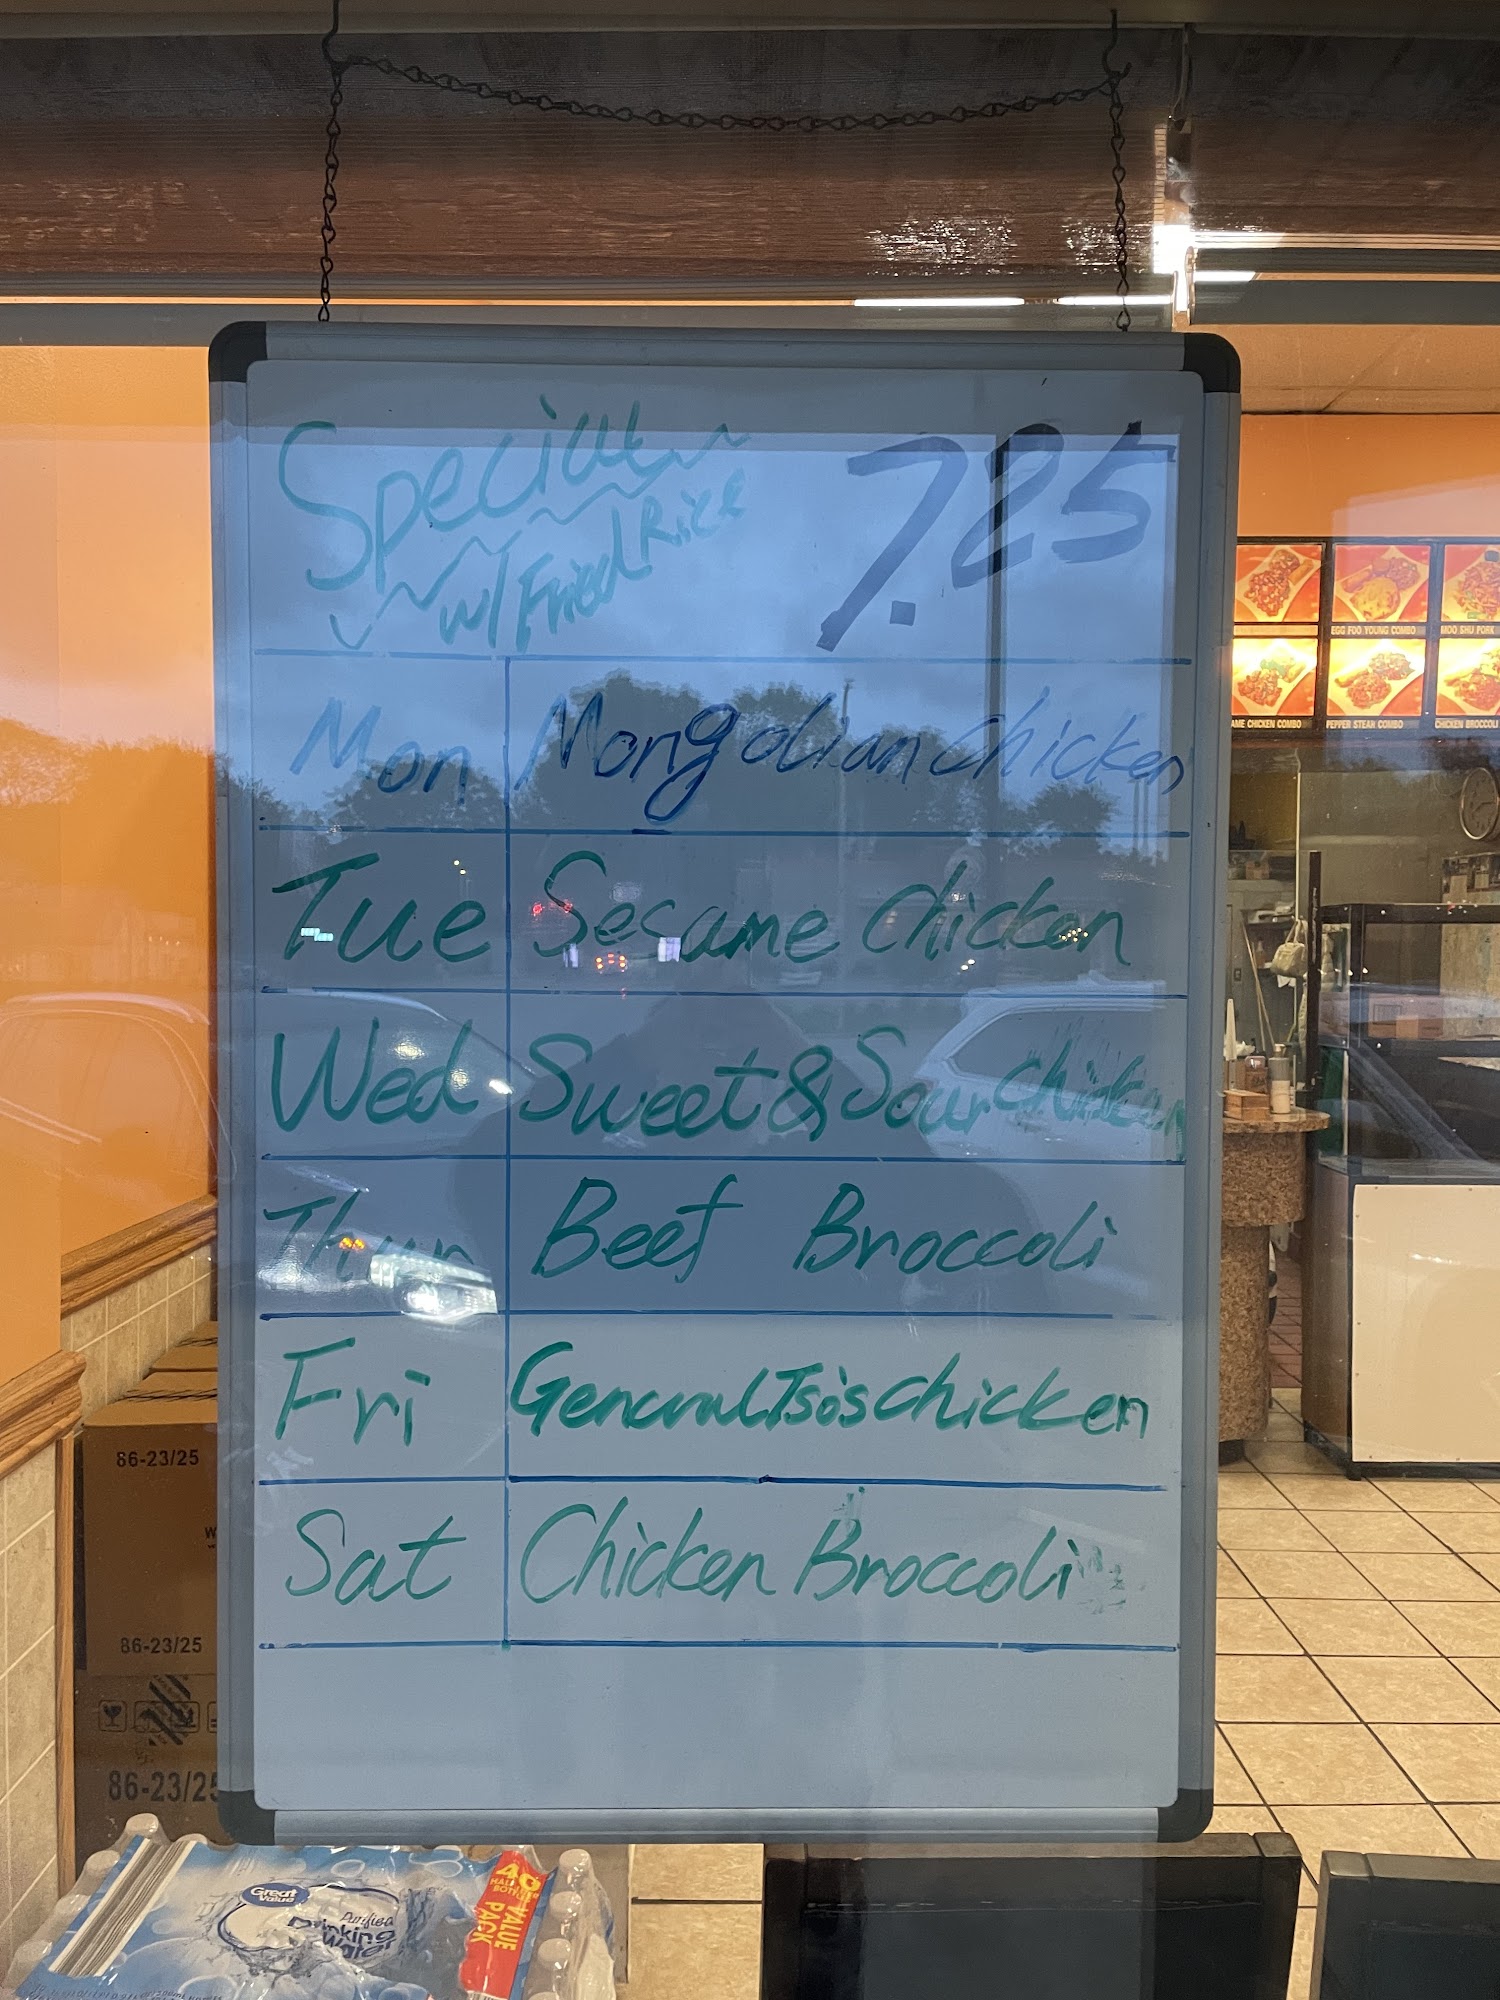 Special
w/ Fried Rice
7.25
Mon Mongolian chicken
Tue Sesame chicken
Wed Sweet & Sour chicken
Thur Beef Broccoli
Fri General Tso's chicken
Sat Chicken Broccoli
EGG FOO YOUNG COMBO
MOO SHU PORK
AME CHICKEN COMBO
PEPPER STEAK COMBO
CHICKEN BROCCOLI
86-23/25
86-23/25
86-23/25
Great Value
Purified
Drinking
Water
40
HALF
BOTTLES
VALUE
PACK